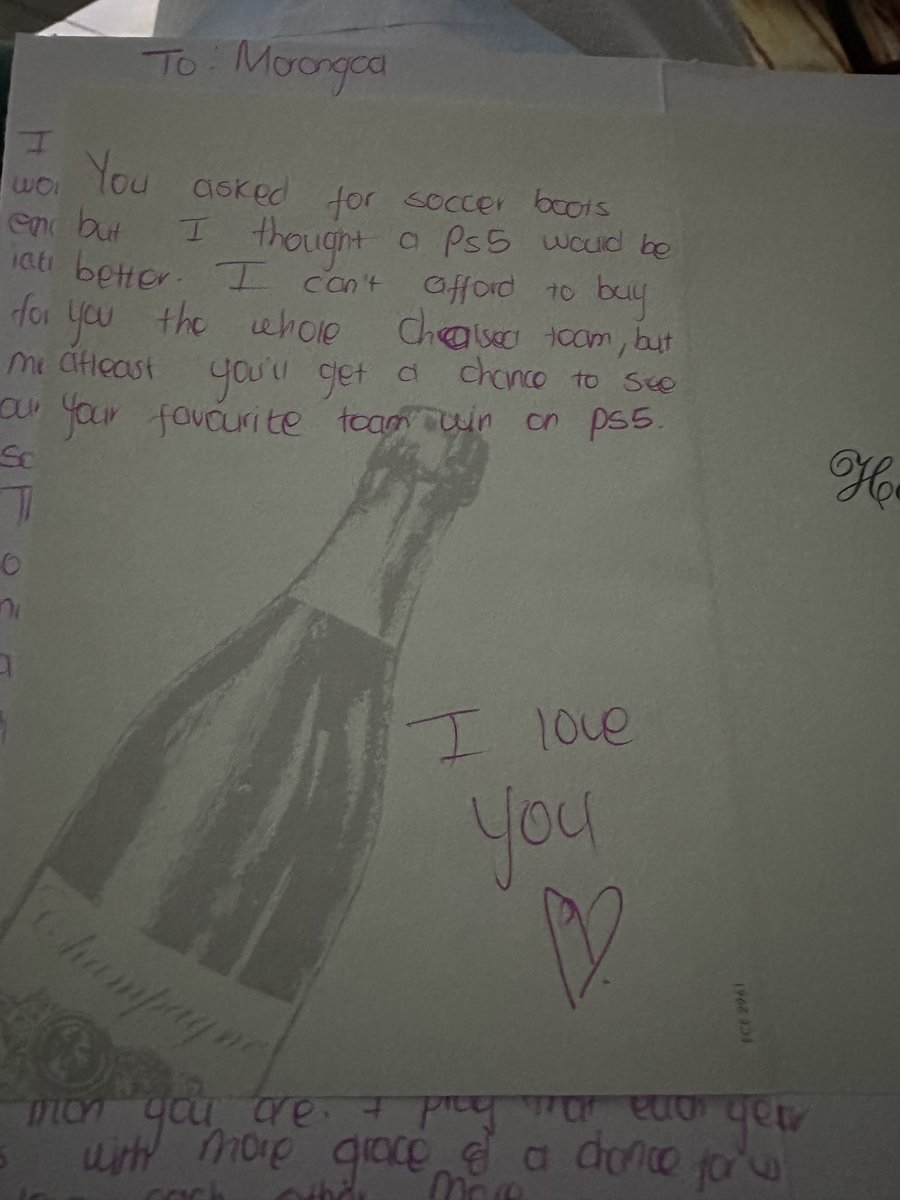 To: Morongoa
I
You asked for soccer boots
but I thought a Ps5 would be
better. I can't afford to buy
for you the whole Chealsea team, but
atleast you'll get a chance to see
your favourite team win on PS5.
I love
you
Champagne
FCE 2961
man you are. I pray that each year
with more grace & a chance for us
each other more